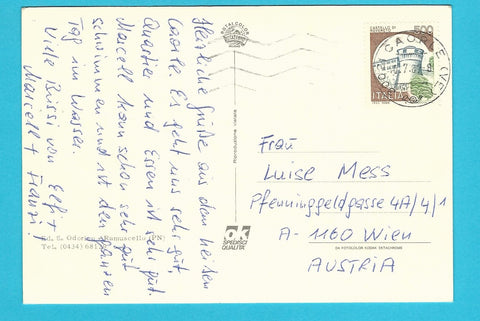 Herzliche Grüße aus dem heißen
Caorle. Es geht uns sehr gut,
Quartier und Essen ist sehr gut.
Marcell kann schon sehr gut
schwimmen und ist den ganzen
Tag im Wasser.
Viele Bussi von Elfi +
Marcell + Franzi!
ROTALCOLOR
Riproduzione vietata
Ed. S. Odorico - Ramuscello (PN)
Tel. (0434) 681
ok
SPEDISCI
QUALITÀ
CASTELLO DI
500
ITALIA
CAORLE (VE)
Frau
Luise Mess
Pfenninggeldgasse 4A/4/1
A-1160 Wien
AUSTRIA
DA FOTOCOLOR KODAK EKTACHROME